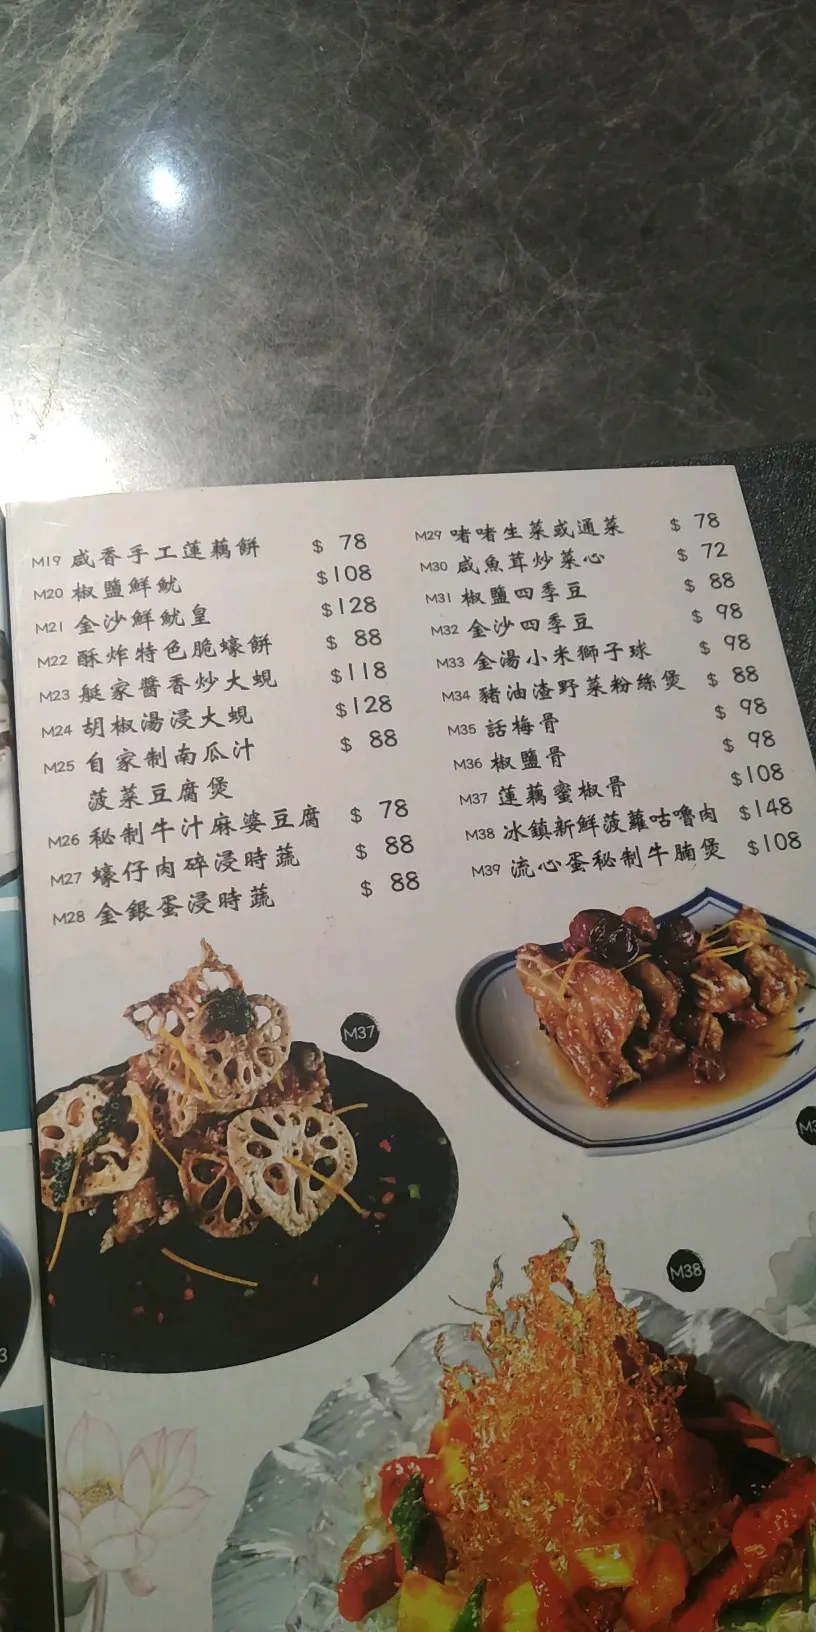 M19 咸香手工蓮藕餅 $ 78
M20 椒鹽鮮魷 $108
M21 金沙鮮魷皇 $128
M22 酥炸特色脆蠔餅 $ 88
M23 艇家醬香炒大蜆 $118
M24 胡椒湯浸大蜆 $128
M25 自家制南瓜汁 $ 88
菠菜豆腐煲
M26 秘制牛汁麻婆豆腐 $ 78
M27 蠔仔肉碎浸時蔬 $ 88
M28 金銀蛋浸時蔬 $ 88
M29 啫啫生菜或通菜 $ 78
M30 咸魚茸炒菜心 $ 72
M31 椒鹽四季豆 $ 88
M32 金沙四季豆 $ 98
M33 金湯小米獅子球 $ 98
M34 豬油渣野菜粉絲煲 $ 88
M35 話梅骨 $ 98
M36 椒鹽骨 $ 98
M37 蓮藕蜜椒骨 $108
M38 冰鎮新鮮菠蘿咕嚕肉 $148
M39 流心蛋秘制牛腩煲 $108
M37
M38
3